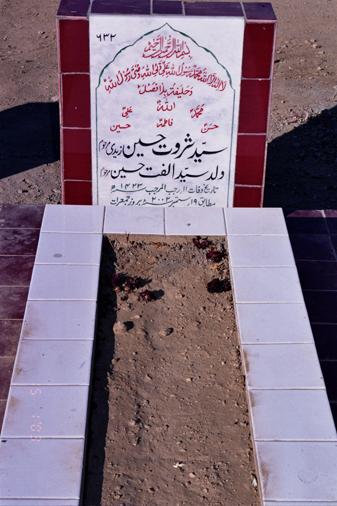 ۶۳۲
بسم اللہ الرحمن الرحیم
لا الہ الا اللہ محمد رسول اللہ علی ولی اللہ وصی رسول اللہ
و خلیفتہ بلا فصل
اللہ
محمد علی
فاطمہ
حسن حسین
سید ثروت حسین زیدی (مرحوم)
ولد سید الفت حسین (مرحوم)
تاریخ وفات ۱۱ رجب المرجب ۱۴۲۳ھ
مطابق ۱۹ ستمبر ۲۰۰۲ء بروز جمعرات